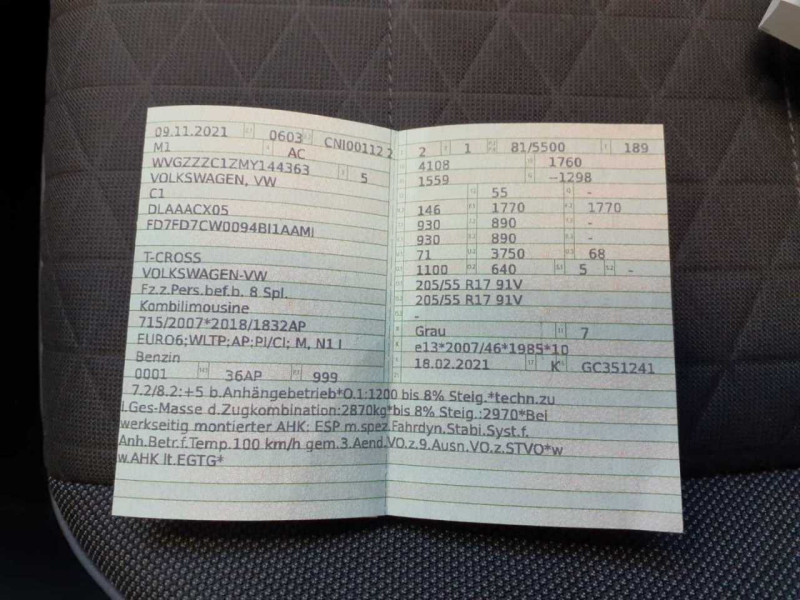 09.11.2021 0603 CNI00112 2
M1 AC
WVGZZZC1ZMY144363 5
VOLKSWAGEN, VW
C1
DLAAACX05
FD7FD7CW0094BI1AAMI
T-CROSS
VOLKSWAGEN-VW
Fz.z.Pers.bef.b. 8 Spl.
Kombilimousine
715/2007*2018/1832AP
EURO6;WLTP;AP;PI/CI; M, N1 I
Benzin
0001 36AP 999
2 1 81/5500 189
4108 1760
1559 --1298
55 -
146 1770 1770
930 890 -
930 890 -
71 3750 68
1100 640 5 -
205/55 R17 91V
205/55 R17 91V
-
Grau 7
e13*2007/46*1985*10
18.02.2021 K GC351241
7.2/8.2:+5 b.Anhängebetrieb*O.1:1200 bis 8% Steig.*techn.zu
l.Ges-Masse d.Zugkombination:2870kg*bis 8% Steig.:2970*Bei
werkseitig montierter AHK: ESP m.spez.Fahrdyn.Stabi.Syst.f.
Anh.Betr.f.Temp.100 km/h gem.3.Aend.VO.z.9.Ausn.VO.z.STVO*w
w.AHK lt.EGTG*